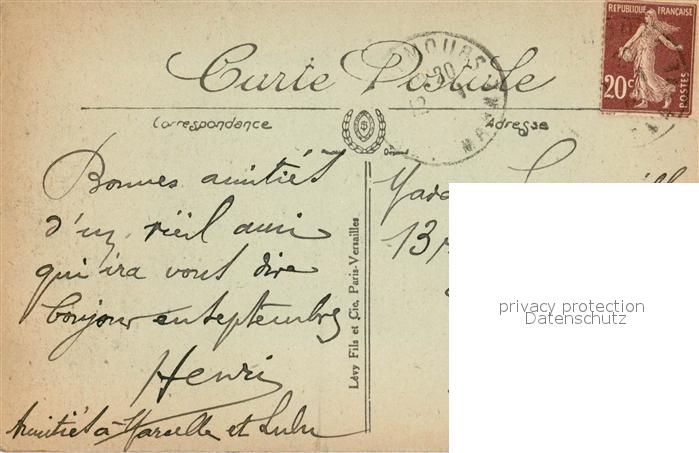 Carte Postale
RÉPUBLIQUE FRANÇAISE
20c
POSTES
Correspondance
Adresse
Bonnes amitiés
d'un vieil ami
qui ira vous dire
bonjour en septembre
Henri
Amitiés à Marcelle et Lulu
Lévy Fils et Cie, Paris-Versailles
13
privacy protection
Datenschutz